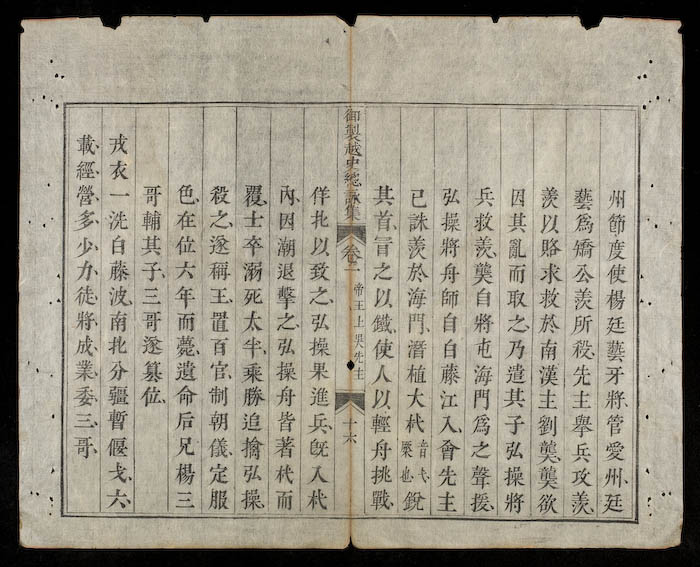 州節度使楊廷藝牙將管愛州廷
藝爲矯公羨所殺先主舉兵攻羨
羨以賂求救於南漢主劉龑龑欲
因其亂而取之乃遣其子弘操將
兵救羨龑自將屯海門爲之聲援
弘操將舟師自白藤江入會先主
已誅羨於海門潛植大杙音弋橜也銳
其首冒之以鐵使人以輕舟挑戰
御製越史總詠集 卷二 帝王上吳先主 十六
佯北以致之弘操果進兵旣入杙
內因潮退擊之弘操舟皆著杙而
覆士卒溺死太半乘勝追擒弘操
殺之遂稱王置百官制朝儀定服
色在位六年而薨遺命后兄楊三
哥輔其子三哥遂篡位
戎衣一洗白藤波南北分疆暫偃戈六
載經營多少力徒將成業委三哥